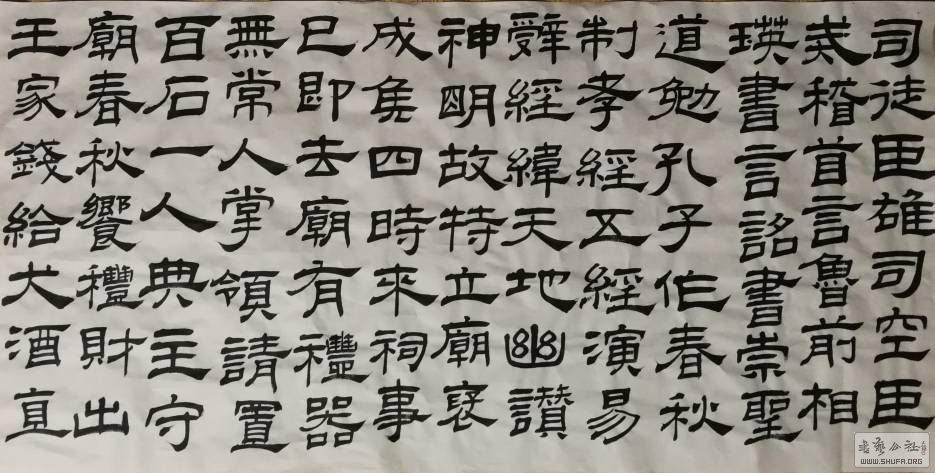 司徒臣雄司空臣
戒稽首言魯前相
瑛書言詔書崇聖
道勉孔子作春秋
制孝經五經演易
辭經緯天地幽讚
神明故特立廟褒
成侯四時來祠事
已即去廟有禮器
無常人掌領請置
百石一人典主守
廟春秋饗禮財出
王家錢給犬酒直
书艺公社
WWW.SHUFA.ORG